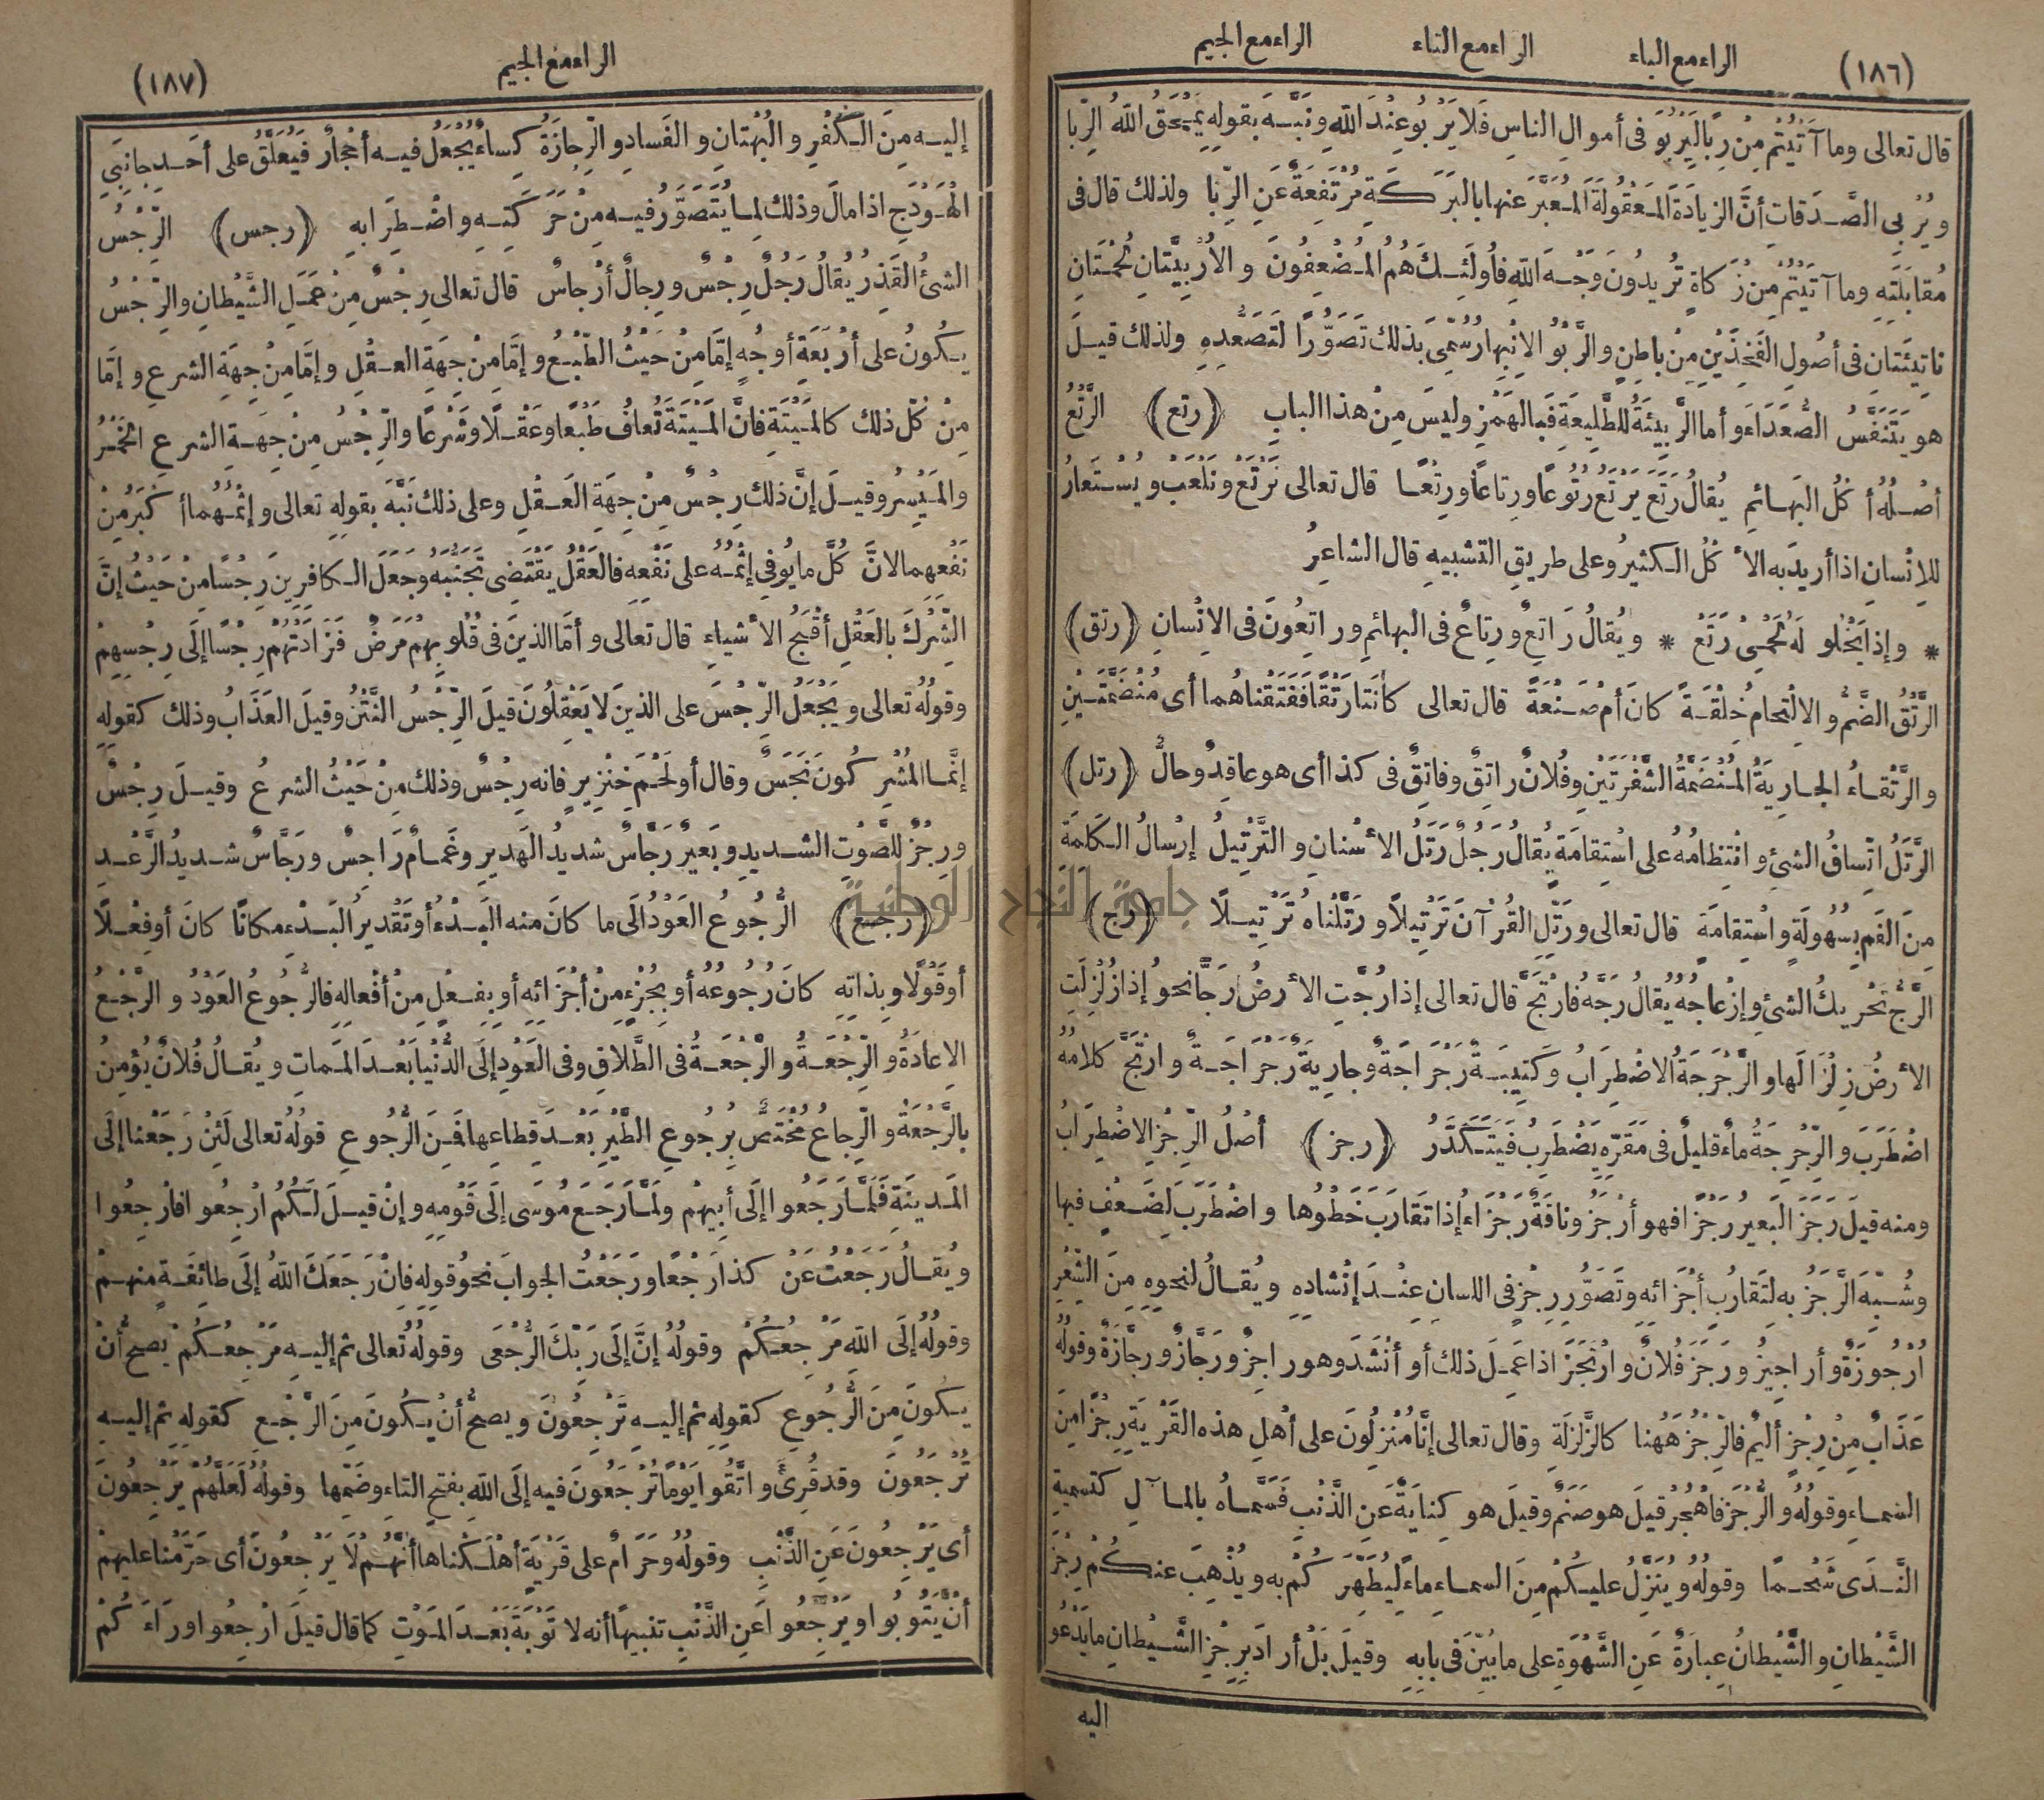 (١٨٦) الراء مع الباء الراء مع التاء الراء مع الجيم
قال تعالى وما آتَيْتُمْ مِنْ رِبًا لِيَرْبُوَ فى أموالِ الناسِ فَلا يَرْبُو عِنْدَ اللهِ ونَبَّهَ بقولِهِ يَمْحَقُ اللهُ الرِّبا
ويُرْبِى الصَّدَقاتِ أنَّ الزيادَةَ المَعْقُولَةَ المُعَبَّرَ عنها بالبَرَكَةِ مُرْتَفِعَةٌ عَنِ الرِّبا ولذلك قال فى
مُقابَلَتِهِ وما آتَيْتُمْ مِنْ زَكاةٍ تُريدُونَ وَجْهَ اللهِ فأُولَئِكَ هُمُ المُضْعِفُونَ والأُرْبِيَّتانِ لُحْمَتانِ
ناتِئَتانِ فى أصُولِ الفَخِذَيْنِ مِنْ باطِنٍ والرَّبْوُ الاِنْبِهارُ سُمِّىَ بذلك تَصَوُّرًا لتَصَعُّدِهِ ولذلك قيلَ
هو يَتَنَفَّسُ الصُّعَدَاءَ وأما الرَّبِيئَةُ للطَّلِيعَةِ فَبالهَمْزِ وليسَ مِنْ هذا البابِ (رتع) الرَّتْعُ
أصْلُهُ أكْلُ البَهائمِ يُقالُ رَتَعَ يَرْتَعُ رُتُوعًا ورِتاعًا ورِتْعًا قال تعالى نَرْتَعْ ونَلْعَبْ ويُسْتَعارُ
للاِنْسانِ اذا أريدَ به الأكْلُ الكثيرُ وعلى طريقِ التشبيهِ قال الشاعِرُ
* وإذا يَخْلُو لَهُ لَحْمِىْ رَتَعْ * ويُقالُ رَاتِعٌ ورِتاعٌ فى البهائمِ وراتِعُونَ فى الاِنْسانِ (رتق)
الرَّتْقُ الضَّمُّ والالْتِحامُ خِلْقَةً كانَ أم صَنْعَةً قال تعالى كانَتا رَتْقًا فَفَتَقْناهُما أى مُنْضَمَّتَيْنِ
والرَّتْقاءُ الجاريَةُ المُنْضَمَّةُ الشَّفْرَتَيْنِ وفُلانٌ راتِقٌ وفاتِقٌ فى كذا أى هو عاقِدٌ وحالٌّ (رتل)
الرَّتَلُ اتِّساقُ الشئِ وانْتِظامُهُ على اسْتِقامَةٍ يُقالُ رَجُلٌ رَتَلُ الأسْنانِ والتَّرْتِيلُ إرْسالُ الكَلِمَةِ
مِنَ الفَمِ بِسُهُولَةٍ واسْتِقامَةٍ قال تعالى ورَتِّلِ القُرْآنَ تَرْتِيلاً ورَتَّلْناهُ تَرْتِيلًا (رج)
الرَّجُّ تَحْريكُ الشئِ وإزْعاجُهُ يُقالُ رَجَّهُ فارْتَجَّ قال تعالى إذا رُجَّتِ الأرضُ رَجًّا نحوُ إذا زُلْزِلَتِ
الأرضُ زِلْزَالَها والرَّجْرَجَةُ الاضْطِرَابُ وكَتِيبَةٌ رَجْرَاجَةٌ وجارِيَةٌ رَجْرَاجَةٌ وارْتَجَّ كلامُهُ
اضْطَرَبَ والرِّجْرِجَةُ ماءٌ قليلٌ فى مَقَرِّهِ يَضْطَرِبُ فَيَتَكَدَّرُ (رجز) أصْلُ الرِّجْزِ الاضْطِرَابُ
ومنه قيلَ رَجَزَ البَعيرُ رَجَزًا فهو أرْجَزُ وناقَةٌ رَجْزَاءُ إذا تَقارَبَ خَطْوُها واضْطَرَبَ لِضَعْفٍ فيها
وشُبِّهَ الرَّجَزُ به لِتَقارُبِ أجْزَائِهِ وتَصَوُّرِ رِجْزٍ فى اللسانِ عِنْدَ إنْشادِهِ ويُقالُ لنحوِهِ مِنَ الشِّعْرِ
أُرْجُوزَةٌ وأراجِيزُ ورَجَزَ فُلانٌ وارْتَجَزَ اذا عَمِلَ ذلك أو أنْشَدَ وهو راجِزٌ ورَجَّازٌ ورِجَّازَةٌ وقولُهُ
عَذَابٌ مِنْ رِجْزٍ أليمٍ فالرِّجْزُ هَهُنا كالزَّلْزَلَةِ وقال تعالى إنَّا مُنْزِلُونَ على أهْلِ هذه القَرْيَةِ رِجْزًا مِنَ
السماءِ وقولُهُ والرُّجْزَ فاهْجُرْ قيلَ هو صَنَمٌ وقيلَ هو كِنايَةٌ عَنِ الذَّنْبِ فَسَمَّاهُ بالمآلِ كتسميةِ
النَّدَى شَحْمًا وقولُهُ ويُنَزِّلُ عليكُمْ مِنَ السماءِ ماءً لِيُطَهِّرَكُمْ به ويُذْهِبَ عنكُمْ رِجْزَ
الشَّيْطانِ والشَّيْطانُ عِبارَةٌ عَنِ الشَّهْوَةِ على ما بُيِّنَ فى بابِهِ وقيلَ بَلْ أرادَ بِرِجْزِ الشَّيْطانِ ما يَدْعُو
اليه
الراء مع الجيم (١٨٧)
إليه مِنَ الكُفْرِ والبُهْتانِ والفَسادِ والرِّجازَةُ كِساءٌ يُجْعَلُ فيه أحْجارٌ فَيُعَلَّقُ على أحَدِ جانِبَىِ
الهَوْدَجِ اذا مالَ وذلك لِما يُتَصَوَّرُ فيه مِنْ حَرَكَتِهِ واضْطِرَابِهِ (رجس) الرِّجْسُ
الشئُ القَذِرُ يُقالُ رَجُلٌ رِجْسٌ ورِجالٌ أرْجاسٌ قال تعالى رِجْسٌ مِنْ عَمَلِ الشَّيْطانِ والرِّجْسُ
يكُونُ على أرْبَعَةِ أوجُهٍ إمَّا مِنْ حَيْثُ الطَّبْعُ وإمَّا مِنْ جِهَةِ العقْلِ وإمَّا مِنْ جِهَةِ الشرعِ وإمَّا
مِنْ كُلِّ ذلك كالمَيْتَةِ فانَّ المَيْتَةَ تُعافُ طَبْعًا وعَقْلًا وشَرْعًا والرِّجْسُ مِنْ جِهَةِ الشرعِ الخَمْرُ
والمَيْسِرُ وقيلَ إنَّ ذلك رِجْسٌ مِنْ جِهَةِ العَقْلِ وعلى ذلك نَبَّهَ بقولِهِ تعالى وإثْمُهُما أكْبَرُ مِنْ
نَفْعِهِما لانَّ كُلَّ ما يُوفِى إثْمُهُ على نَفْعِهِ فالعَقْلُ يَقْتَضِى تَجَنُّبَهُ وجَعَلَ الكافِرِينَ رِجْسًا مِنْ حَيْثُ إنَّ
الشِّرْكَ بالعَقْلِ أقْبَحُ الأشياءِ قال تعالى وأمَّا الذينَ فى قُلُوبِهِمْ مَرَضٌ فَزَادَتْهُمْ رِجْسًا إلَى رِجْسِهِمْ
وقولُهُ تعالى ويَجْعَلُ الرِّجْسَ على الذينَ لا يَعْقِلُونَ قيلَ الرِّجْسُ النَّتْنُ وقيلَ العَذَابُ وذلك كقولِهِ
إنَّما المُشْرِكُونَ نَجَسٌ وقال أو لَحْمَ خِنْزِيرٍ فانه رِجْسٌ وذلك مِنْ حَيْثُ الشرعُ وقيلَ رِجْسٌ
ورِجْزٌ للصَّوْتِ الشديدِ وبَعيرٌ رَجَّاسٌ شديدُ الهَدِيرِ وغَمامٌ رَاجِسٌ ورَجَّاسٌ شديدُ الرَّعْدِ
(رجع) الرُّجُوعُ العَوْدُ الَى ما كانَ منه البَدْءُ أو تَقْديرُ البَدْءِ مكانًا كانَ أو فِعْلًا
أو قَوْلًا وبِذاتِهِ كانَ رُجُوعُهُ أو بِجُزْءٍ مِنْ أجْزَائِهِ أو بِفِعْلٍ مِنْ أفْعالِهِ فالرُّجُوعُ العَوْدُ والرَّجْعُ
الاِعادَةُ والرِّجْعَةُ والرَّجْعَةُ فى الطَّلاقِ وفى العَوْدِ إلَى الدُّنْيا بَعْدَ المَماتِ ويُقالُ فُلانٌ يُؤْمِنُ
بالرَّجْعَةِ والرِّجاعُ مُخْتَصٌّ بِرُجُوعِ الطَّيْرِ بَعْدَ قِطاعِها فَمِنَ الرُّجُوعِ قولُهُ تعالى لَئِنْ رَجَعْنا إلَى
المَدينَةِ فَلَمَّا رَجَعُوا إلَى أبِيهِمْ ولَمَّا رَجَعَ مُوسَى إلَى قَوْمِهِ وإنْ قيلَ لَكُمُ ارْجِعُوا فارْجِعُوا
ويُقالُ رَجَعْتُ عَنْ كذا رَجْعًا ورَجَعْتُ الجوابَ نحوُ قولِهِ فانْ رَجَعَكَ اللهُ إلَى طائفَةٍ منهمْ
وقولُهُ إلَى اللهِ مَرْجِعُكُمْ وقولُهُ إنَّ إلَى رَبِّكَ الرُّجْعَى وقولُهُ تعالى ثم إليه مَرْجِعُكُمْ يصحُّ أنْ
يكُونَ مِنَ الرُّجُوعِ كقولِهِ ثم إليه تَرْجِعُونَ ويصحُّ أنْ يكُونَ مِنَ الرَّجْعِ كقولِهِ ثم إليه
تُرْجَعُونَ وقد قُرِئَ واتَّقُوا يَوْمًا تُرْجَعُونَ فيه إلَى اللهِ بفتحِ التاءِ وضَمِّها وقولُهُ لَعَلَّهُمْ يَرْجِعُونَ
أى يَرْجِعُونَ عَنِ الذَّنْبِ وقولُهُ وحَرَامٌ على قَرْيَةٍ أهْلَكْناها أنَّهُمْ لَا يَرْجِعُونَ أى حَرَّمْنا عليهِمْ
أنْ يَتُوبُوا ويَرْجِعُوا عَنِ الذَّنْبِ تنبيهًا أنه لا تَوْبَةَ بَعْدَ المَوْتِ كما قال قيلَ ارْجِعُوا ورَاءَكُمْ
جامعة النجاح الوطنية